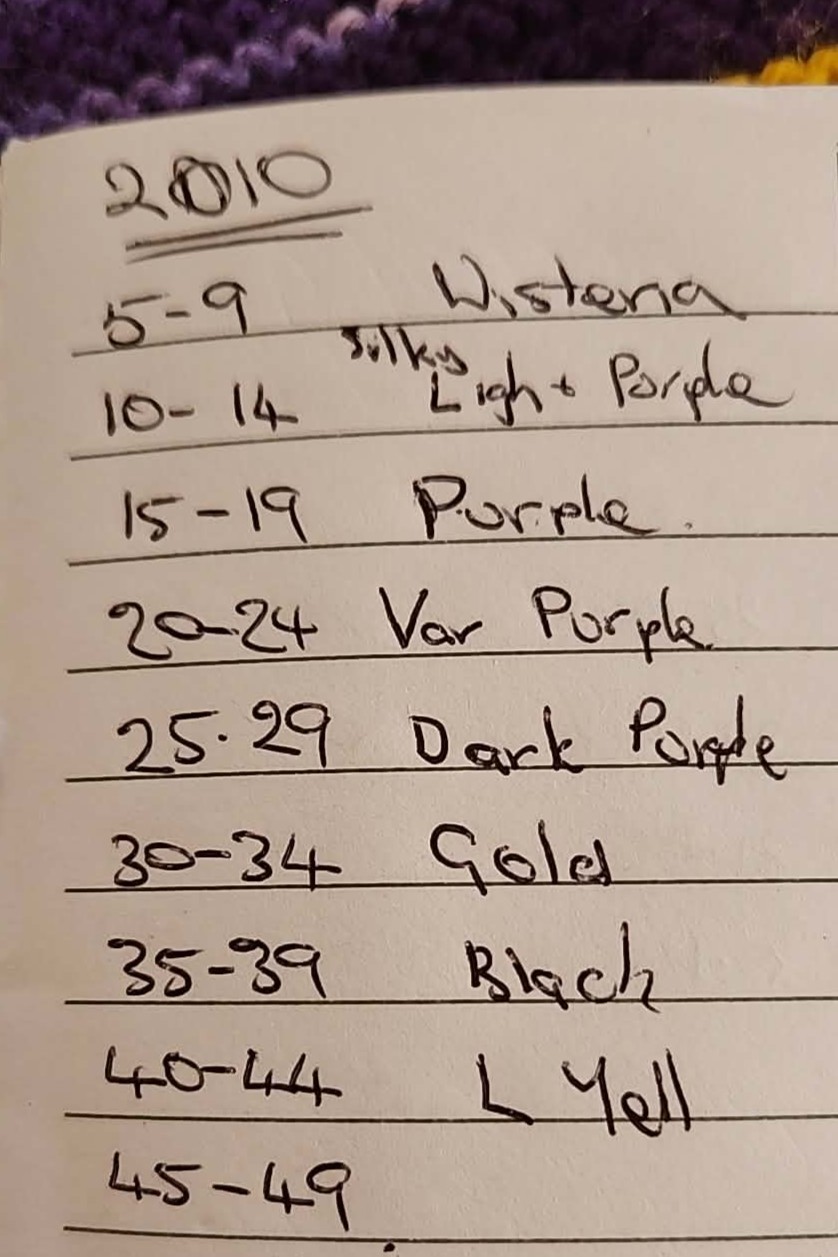 2010
5-9 Wisteria
10-14 silky Light Purple
15-19 Purple.
20-24 Var Purple
25.29 Dark Purple
30-34 Gold
35-39 Black
40-44 L Yell
45-49